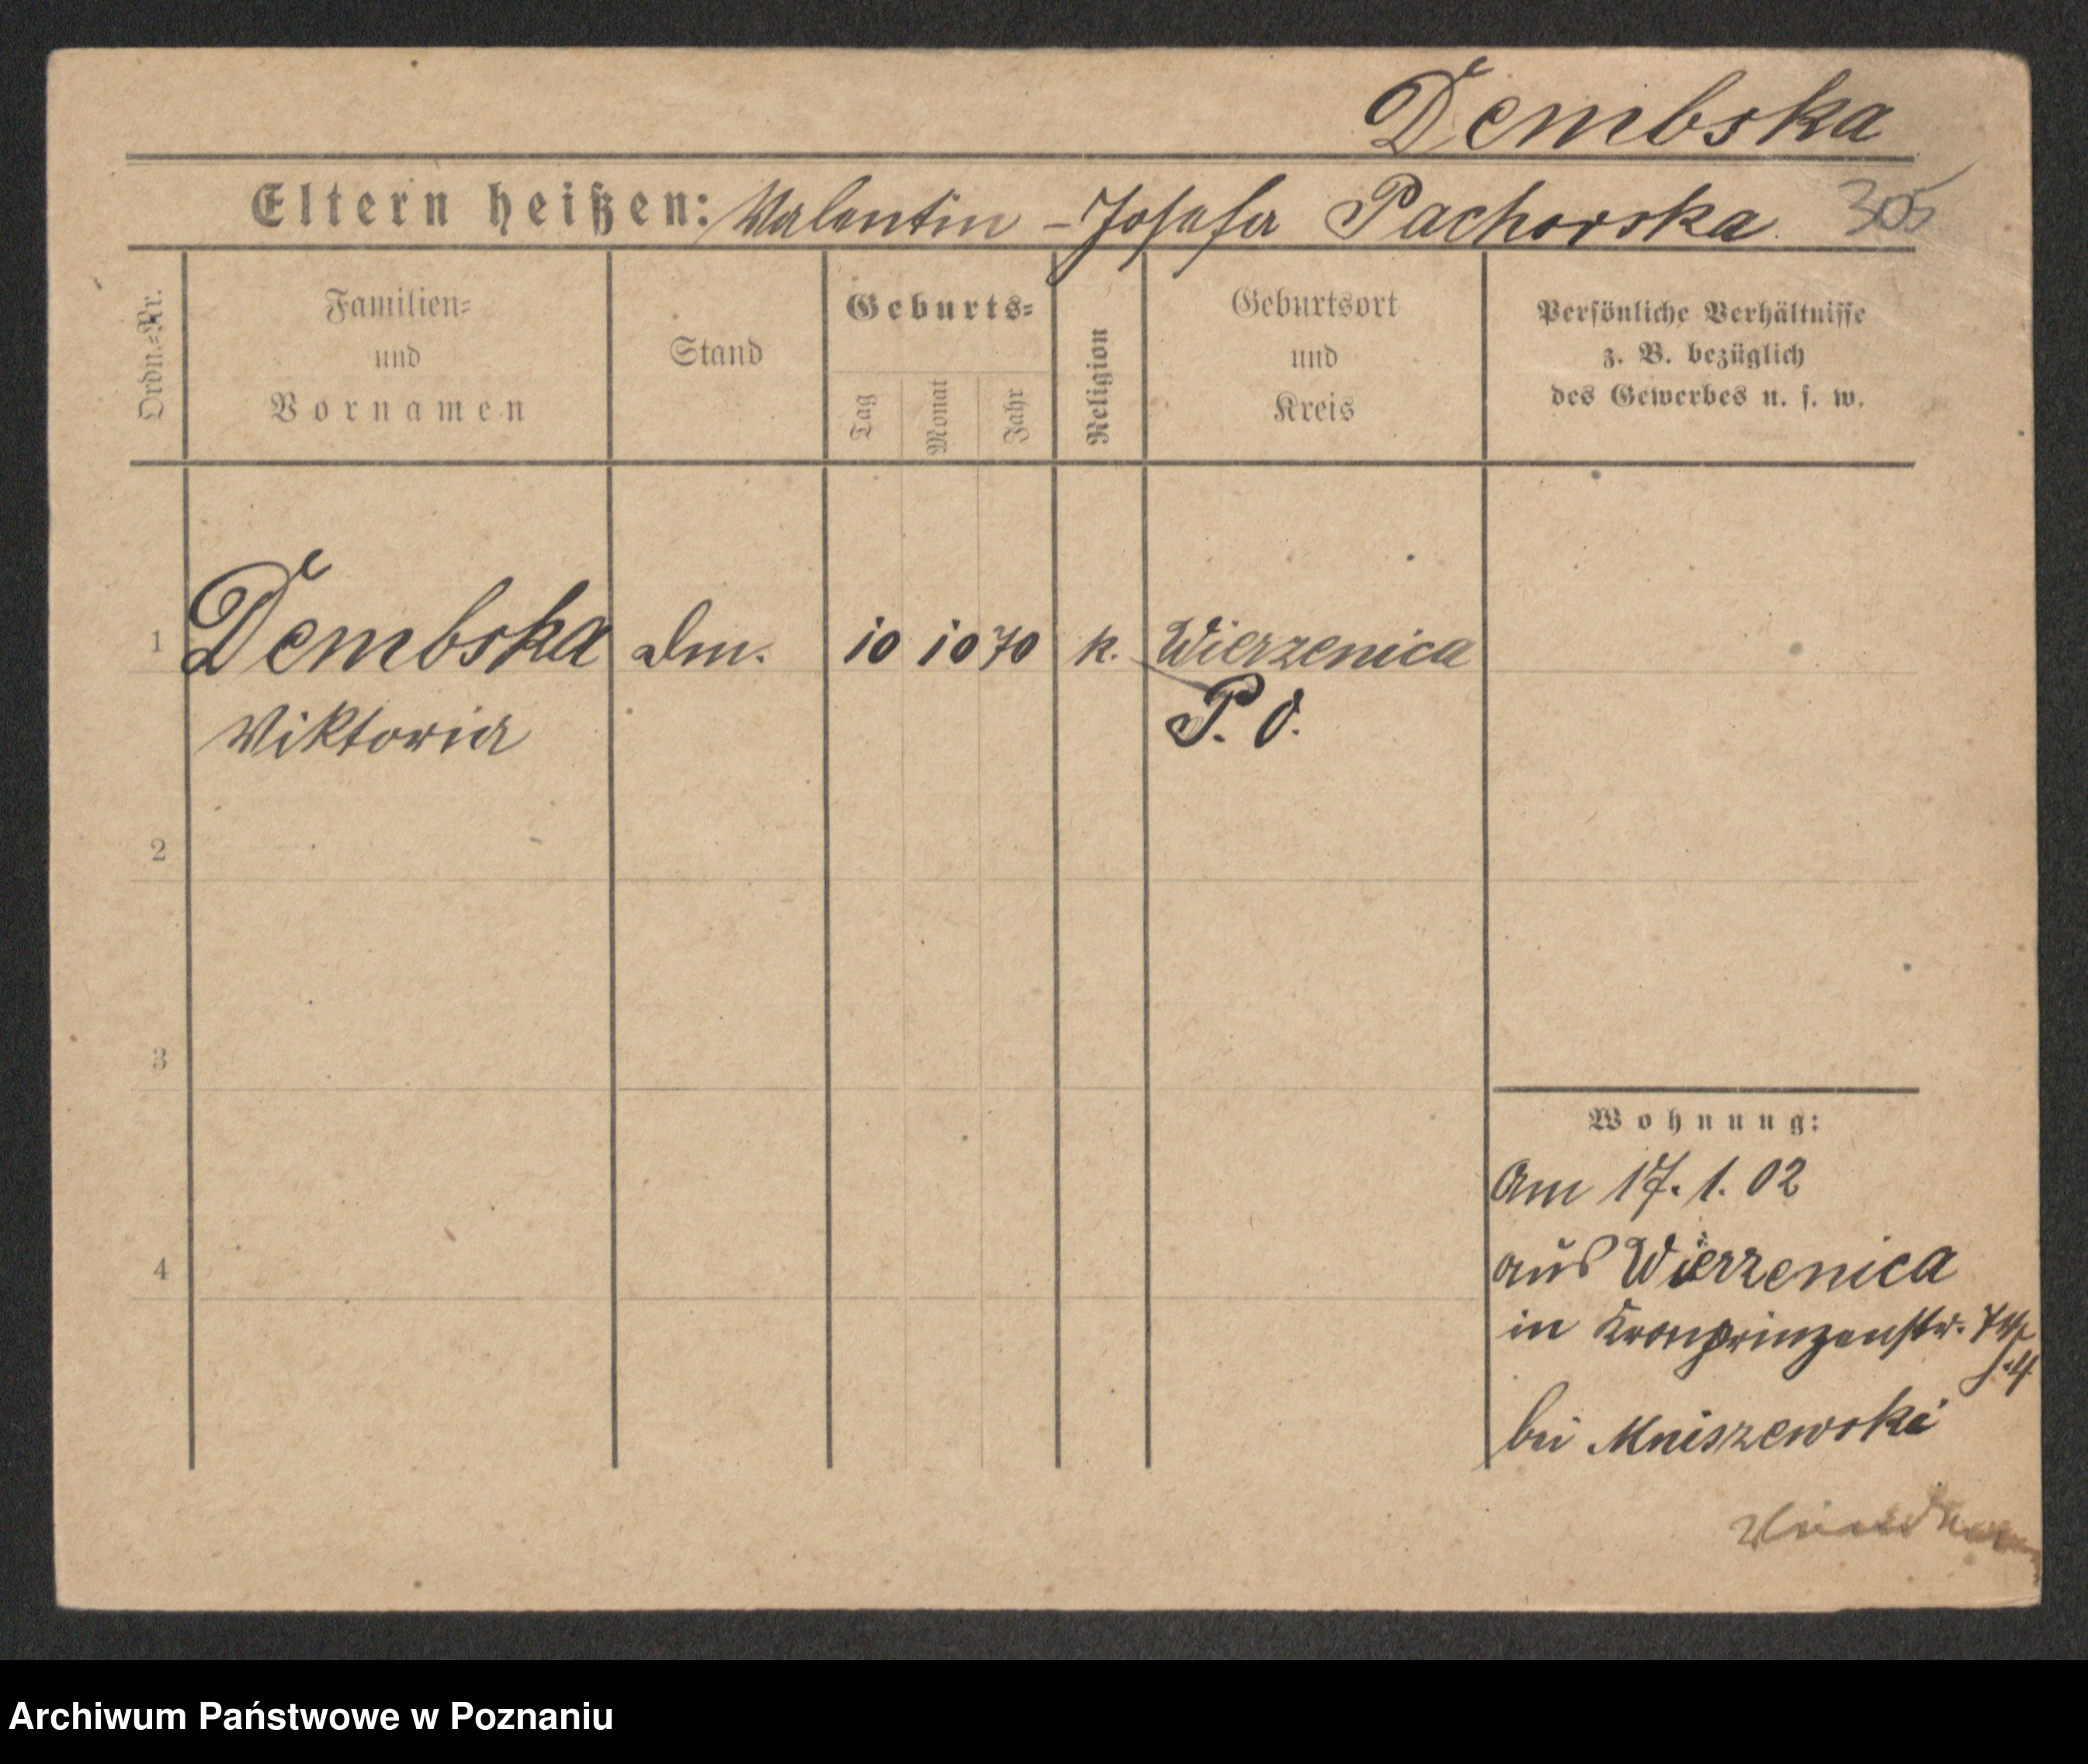 Dembska
Eltern heißen: Valentin - Josefa Pachorska 305
Ordn.=Nr.
Familien=
und
Vornamen
Stand
Geburts=
Tag
Monat
Jahr
Religion
Geburtsort
und
Kreis
Persönliche Verhältnisse
z. B. bezüglich
des Gewerbes u. s. w.
1 Dembska 10 10 70 k. Wierzenica
Viktoria P. O.
2
3
4
Wohnung:
Am 17. 1. 02
aus Wierzenica
in Kronprinzenstr.
bei Mniszewski
Archiwum Państwowe w Poznaniu